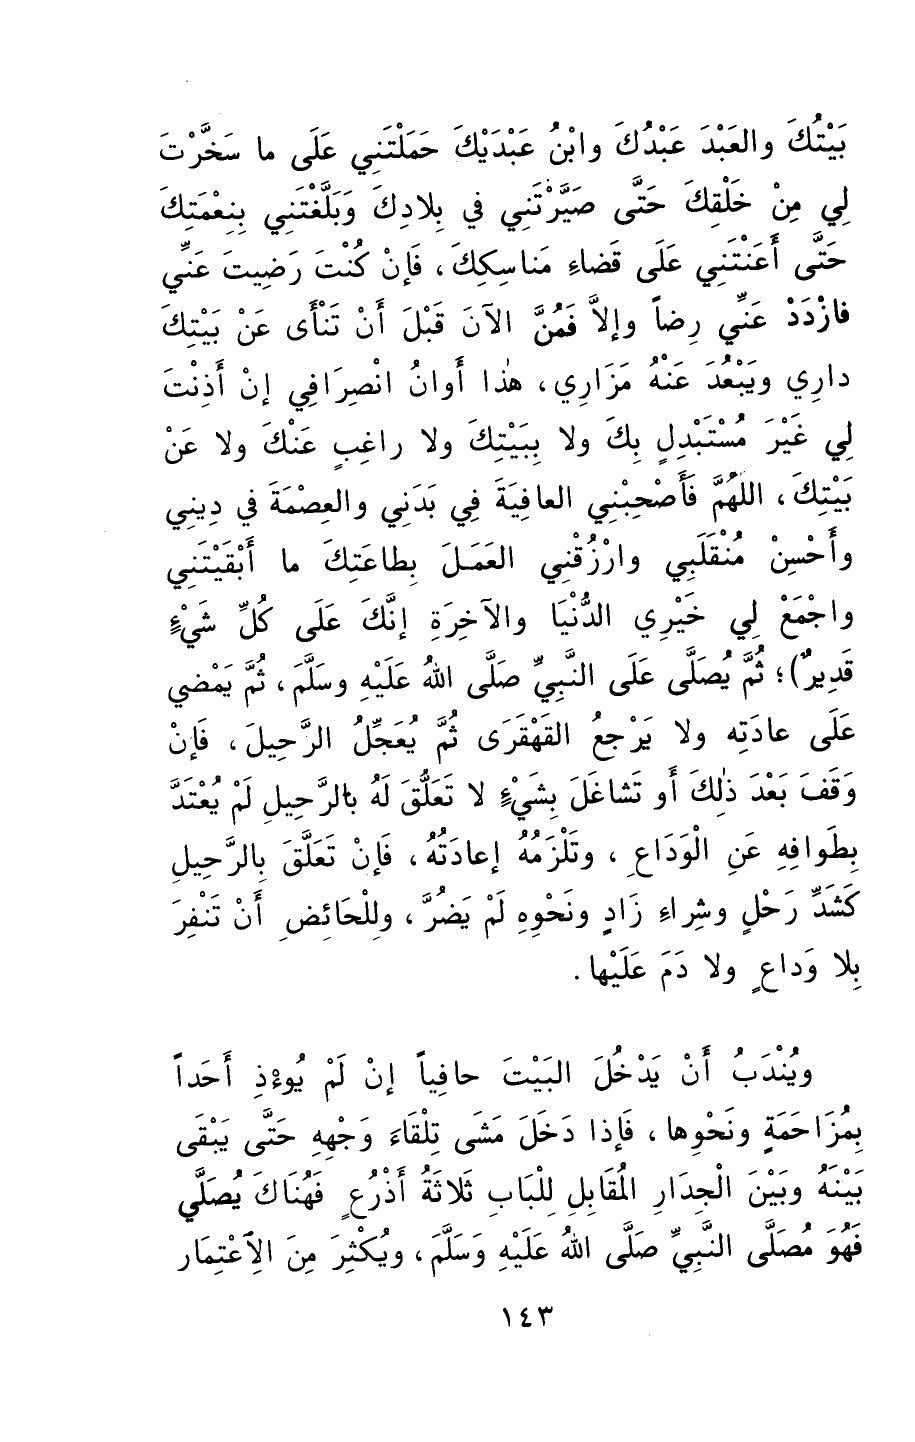 بَيْتُكَ والعَبْدَ عَبْدُكَ وابْنُ عَبْدَيْكَ حَمَلْتَنِي عَلَى ما سَخَّرْتَ
لِي مِنْ خَلْقِكَ حَتَّى صَيَّرْتَنِي في بِلادِكَ وَبَلَّغْتَنِي بِنِعْمَتِكَ
حَتَّى أَعَنْتَنِي عَلَى قَضاءِ مَناسِكِكَ، فَإنْ كُنْتَ رَضِيتَ عَنِّي
فازْدَدْ عَنِّي رِضاً وإلاَّ فَمُنَّ الآنَ قَبْلَ أَنْ تَنْأَى عَنْ بَيْتِكَ
دارِي ويَبْعُدَ عَنْهُ مَزَارِي، هٰذا أَوانُ انْصِرَافِي إنْ أَذِنْتَ
لِي غَيْرَ مُسْتَبْدِلٍ بِكَ ولا بِبَيْتِكَ ولا راغِبٍ عَنْكَ ولا عَنْ
بَيْتِكَ، اللهُمَّ فَأَصْحِبْنِي العافِيَةَ فِي بَدَنِي والعِصْمَةَ في دِينِي
وأَحْسِنْ مُنْقَلَبِي وارْزُقْنِي العَمَلَ بِطاعَتِكَ ما أَبْقَيْتَنِي
واجْمَعْ لِي خَيْرِي الدُّنْيَا والآخِرَةِ إنَّكَ عَلَى كُلِّ شَيْءٍ
قَدِيرٌ)؛ ثُمَّ يُصَلَّى عَلَى النَّبِيِّ صَلَّى اللهُ عَلَيْهِ وسَلَّمَ، ثُمَّ يَمْضي
عَلَى عادَتِه ولا يَرْجعُ القَهْقَرَى ثُمَّ يُعَجِّلُ الرَّحِيلَ، فَإنْ
وَقَفَ بَعْدَ ذٰلِكَ أَو تَشاغَلَ بِشَيْءٍ لا تَعَلُّقَ لَهُ بالرَّحِيلِ لَمْ يُعْتَدَّ
بِطَوافِهِ عَنِ الْوَدَاعِ، وتَلْزَمُهُ إعادَتُهُ، فَإنْ تَعَلَّقَ بِالرَّحِيلِ
كَشَدِّ رَحْلٍ وشِراءِ زَادٍ ونَحْوِهِ لَمْ يَضُرَّ، ولِلْحَائِضِ أَنْ تَنْفِرَ
بِلا وَداعٍ ولا دَمَ عَلَيْها.
ويُنْدَبُ أَنْ يَدْخُلَ البَيْتَ حافِياً إنْ لَمْ يُوءْذِ أَحَداً
بِمُزَاحَمَةٍ ونَحْوِها، فَإذا دَخَلَ مَشَى تِلْقَاءَ وَجْهِهِ حَتَّى يَبْقَى
بَيْنَهُ وبَيْنَ الْجِدَارِ المُقابِلِ لِلْبَابِ ثَلاثَةُ أَذْرُعٍ فَهُنَاكَ يُصَلَّي
فَهُوَ مُصَلَّى النَّبِيِّ صَلَّى اللهُ عَلَيْهِ وَسَلَّمَ، ويُكْثِرَ مِنَ الاِعْتِمَار
١٤٣